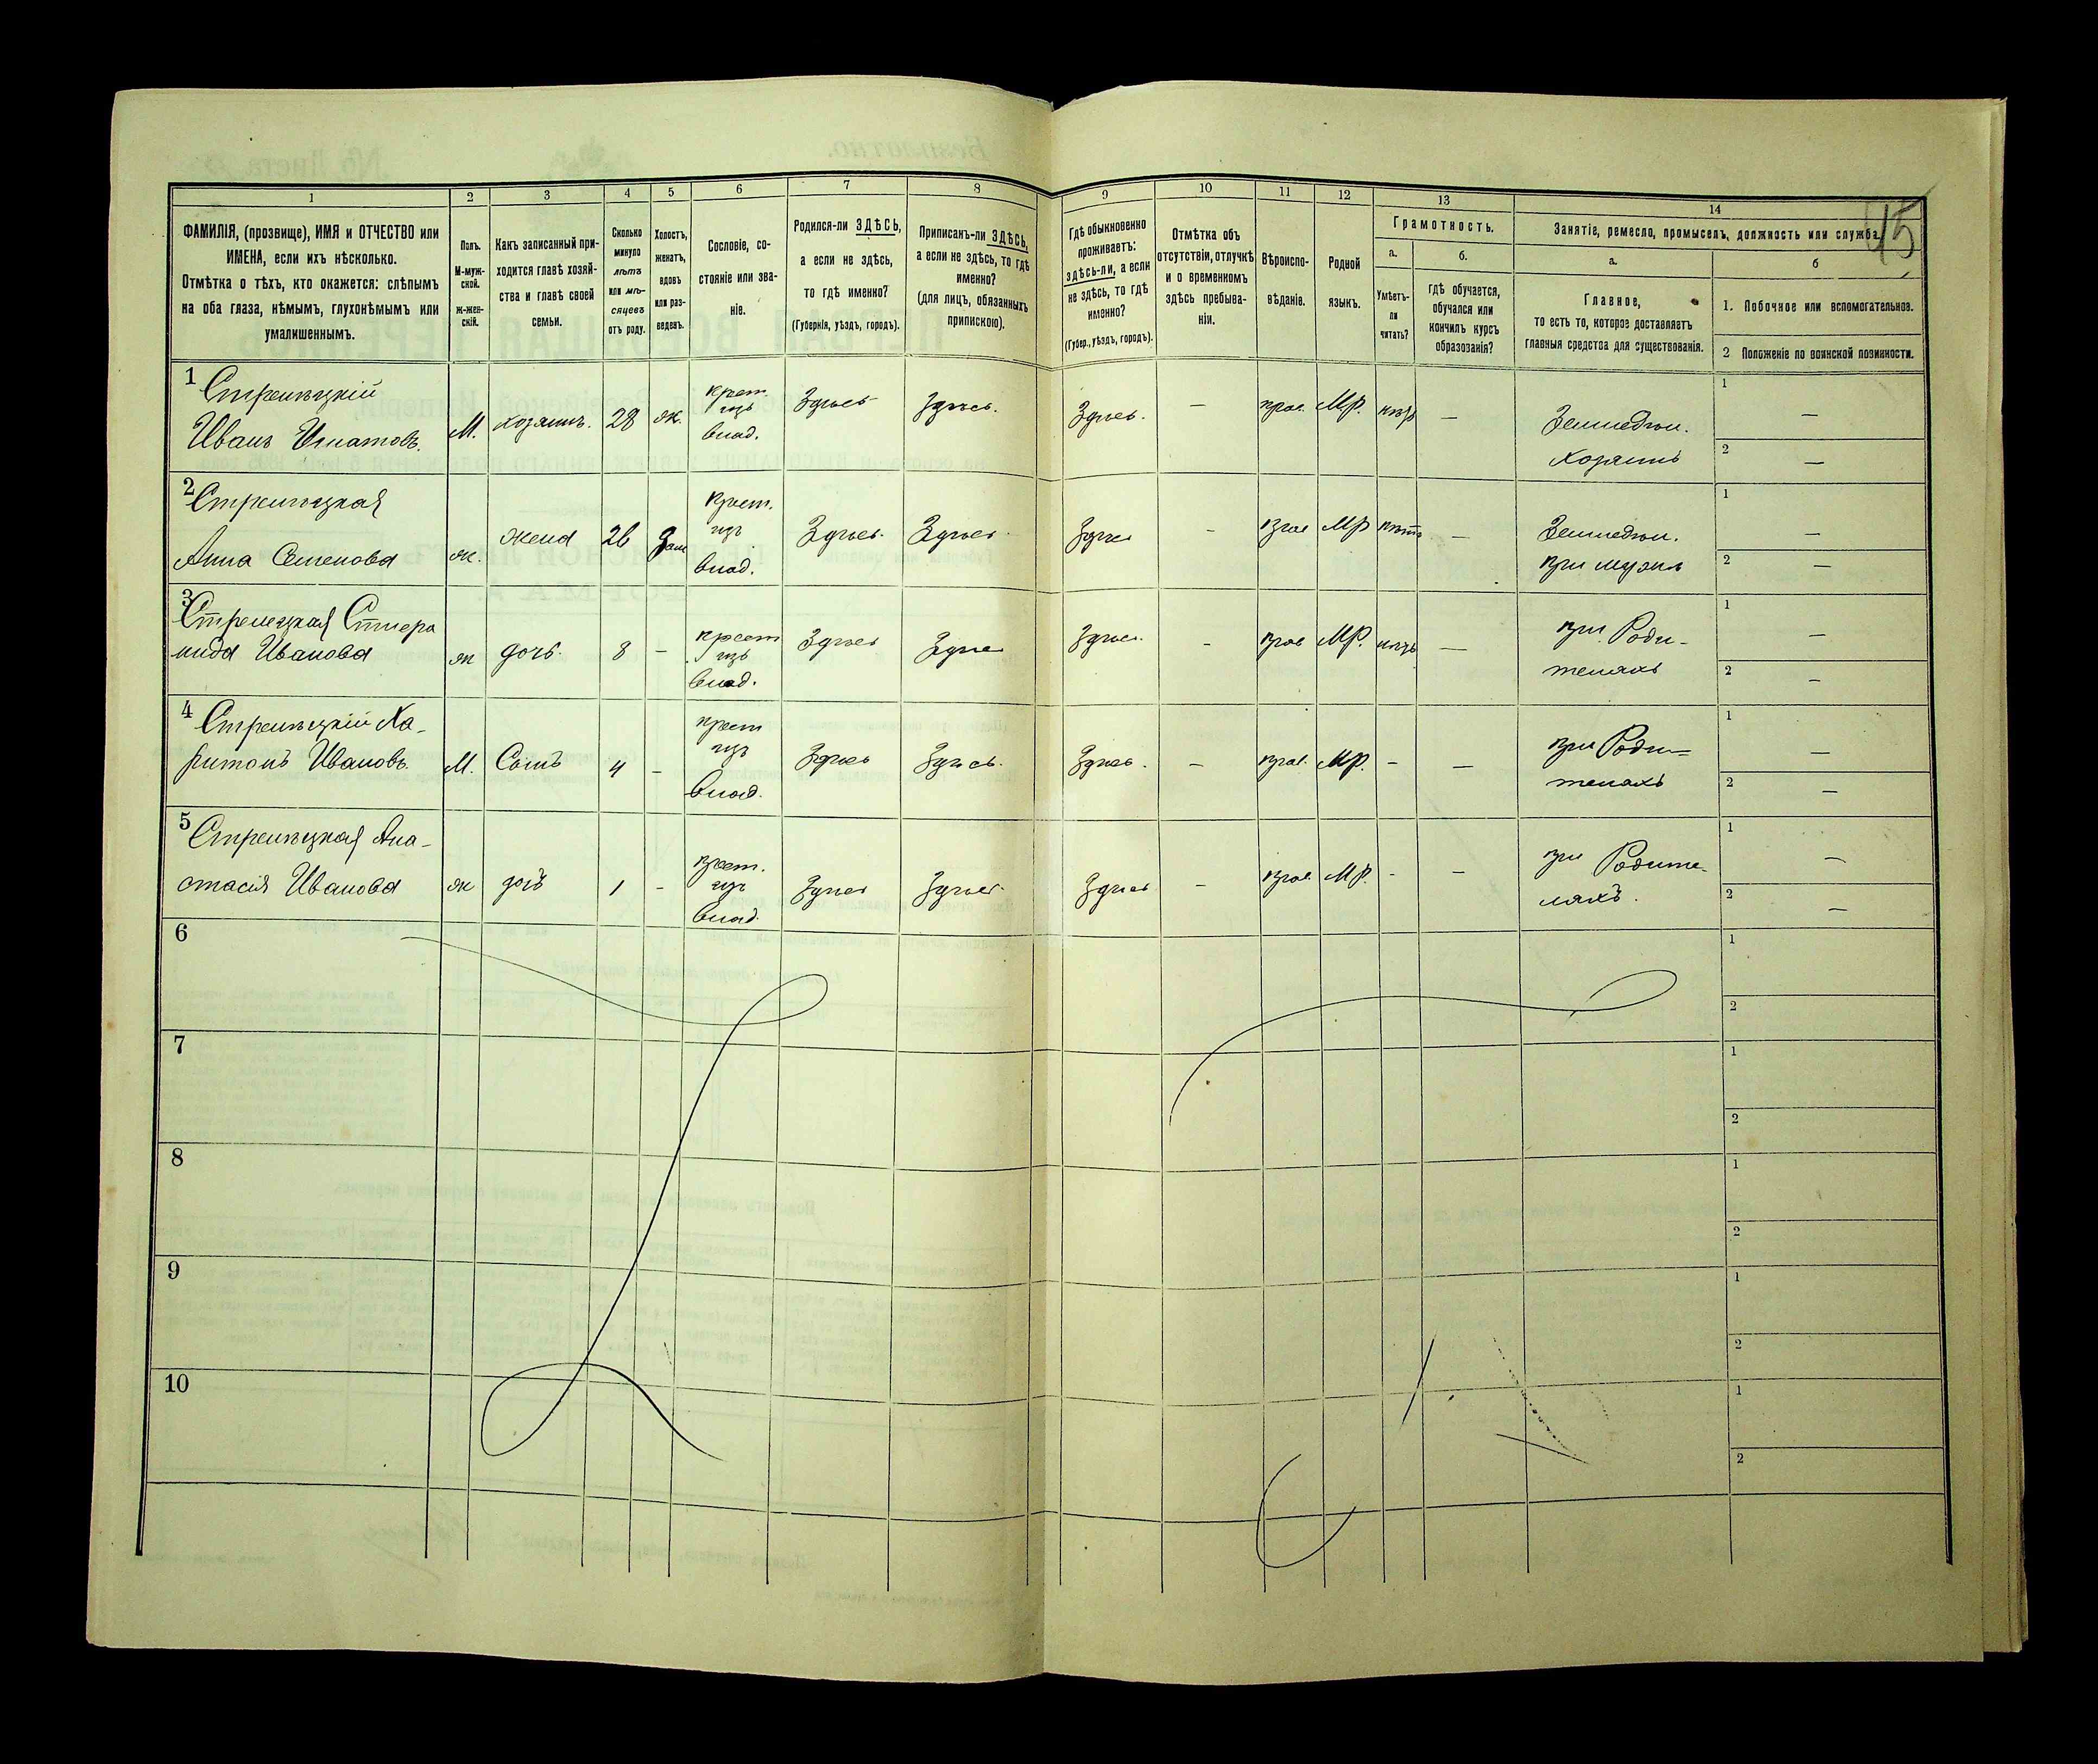 45
1 2 3 4 5 6 7 8 9 10 11 12 13 14
ФАМИЛІЯ, (прозвище), ИМЯ и ОТЧЕСТВО или
ИМЕНА, если ихъ нѣсколько.
Отмѣтка о тѣхъ, кто окажется: слѣпымъ
на оба глаза, нѣмымъ, глухонѣмымъ или
умалишеннымъ.
Полъ.
М-муж-
ской.
Ж-жен-
скій.
Какъ записанный при-
ходится главѣ хозяй-
ства и главѣ своей
семьи.
Сколько
минуло
лѣтъ
или мѣ-
сяцевъ
отъ роду.
Холостъ,
женатъ,
вдовъ
или раз-
веденъ.
Сословіе, со-
стояніе или зва-
ніе.
Родился-ли ЗДѢСЬ,
а если не здѣсь,
то гдѣ именно?
(Губернія, уѣздъ, городъ).
Приписанъ-ли ЗДѢСЬ,
а если не здѣсь, то гдѣ
именно?
(для лицъ, обязанныхъ
припискою).
Гдѣ обыкновенно
проживаетъ:
здѣсь-ли, а если
не здѣсь, то гдѣ
именно?
(Губер., уѣздъ, городъ).
Отмѣтка объ
отсутствіи, отлучкѣ
и о временномъ
здѣсь пребыва-
ніи.
Вѣроиспо-
вѣданіе.
Родной
языкъ.
Грамотность.
а.
Умѣетъ-
ли
читать?
б.
гдѣ обучается,
обучался или
кончилъ курсъ
образованія?
Занятіе, ремесло, промыселъ, должность или служба.
а.
Главное,
то есть то, которое доставляетъ
главныя средства для существованія.
б
1. Побочное или вспомогательное.
2 Положеніе по воинской повинности.
1 Стрелѣцкій
Иванъ Игнатовъ. М. хозяинъ. 28 ж. крест. изъ влад. Здѣсь Здѣсь. Здѣсь. — прав. М.Р. — Землед.
хозяинъ
1 —
2 —
2 Стрелѣцкая
Анна Семенова ж. жена 26 зам крест. изъ влад. Здѣсь. Здѣсь. Здѣсь - прав МР нѣтъ — Землед.
при мужѣ
1 —
2 —
3 Стрелецкая
Иванова ж дочь. 8 — крест изъ влад. Здѣсь Здѣсь Здѣсь. - прав М.Р. — при Роди-
теляхъ
1 —
2 —
4 Стрелѣцкій Ха-
ритонъ Ивановъ. М. Сынъ 4 — крест изъ влад. Здѣсь Здѣсь. Здѣсь. — прав. М.Р. - — при Роди-
теляхъ
1 —
2 —
5 Стрелѣцкая Ана-
стасія Иванова ж дочь 1 - крест. изъ влад. Здѣсь Здѣсь. Здѣсь — прав. М.Р. - — при Родите-
ляхъ.
1 —
2 —
6
1
2
7
1
2
8
1
2
9
1
2
10
1
2